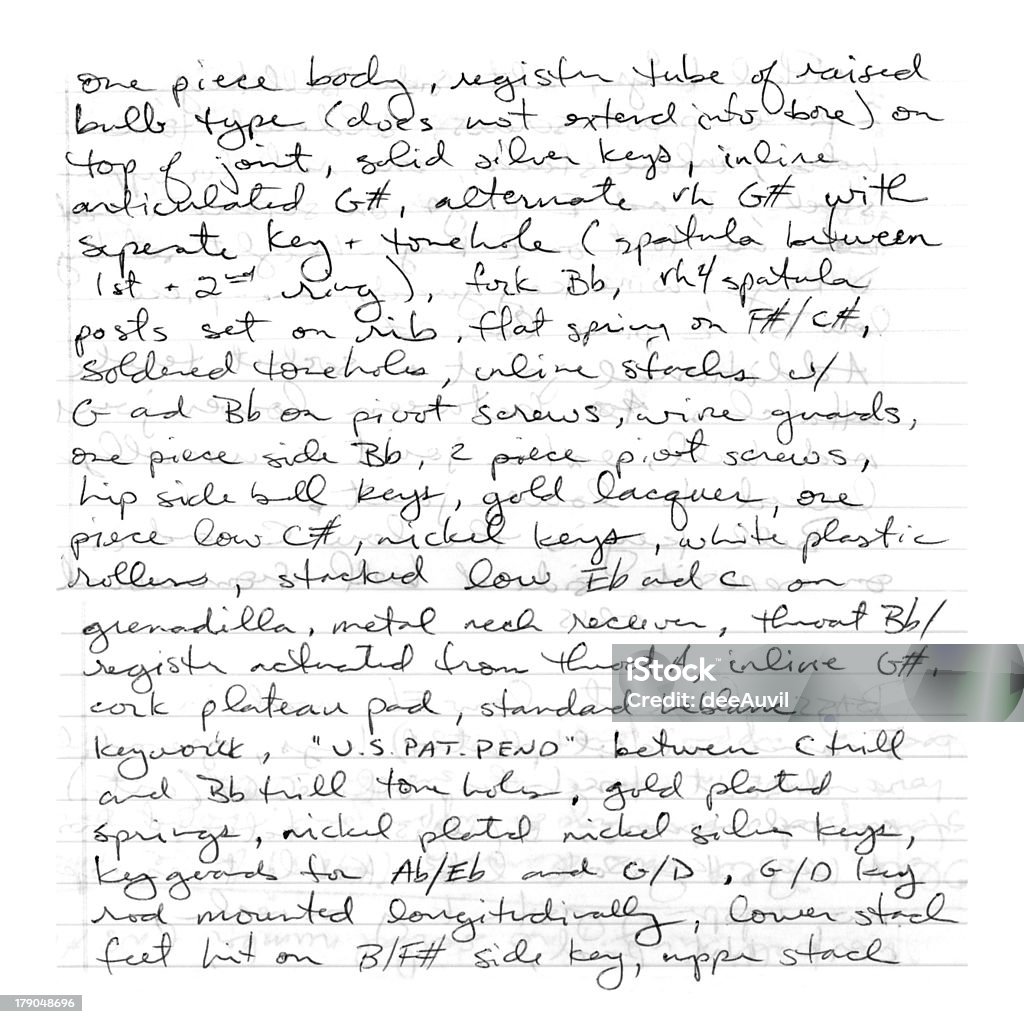 one piece body, register tube of raised
bulb type (does not extend into bore) on
top of joint, solid silver keys, inline
articulated G#, alternate rh G# with
seperate key + tonehole (spatula between
1st + 2nd ring), fork Bb, rh4 spatula
posts set on rib, flat spring on F#/C#,
soldered toneholes, inline stacks w/
G and Bb on pivot screws, wire guards,
one piece side Bb, 2 piece pivot screws,
hip side bell keys, gold lacquer, one
piece low C#, nickel keys, white plastic
rollers, stacked low Eb and C on
grenadilla, metal neck receiver, throat Bb/
register actuated from throat A, inline G#,
cork plateau pad, standard
keywork, "U.S. PAT. PEND" between C trill
and Bb trill tone holes, gold plated
springs, nickel plated nickel silver keys,
key guards for Ab/Eb and G/D, G/D key
rod mounted longitudinally, lower stack
feet hit on B/F# side key, upper stack
iStock
Credit: deeAuvil
179048696